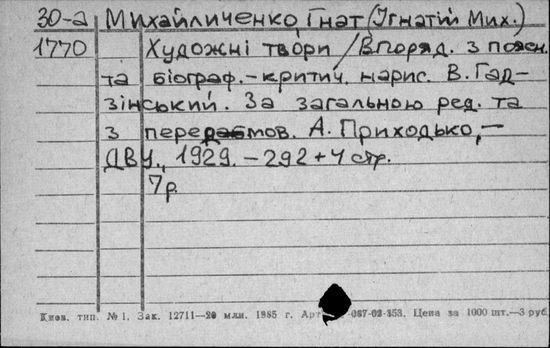 30-а Михайличенко, Гнат (Ігнатій Мих.)
1770 Художні твори / Впоряд. з поясн.
та біограф.-критич. нарис. В. Гад-
зінський. За загальною ред. та
з передмов. А. Приходько, –
ДВУ, 1929. – 292 + 4 стр.
7 р.
Киов. тип. № 1. Зак. 12711—20 млн. 1985 г. Арт -087-02-353. Цена за 1000 шт.—3 руб